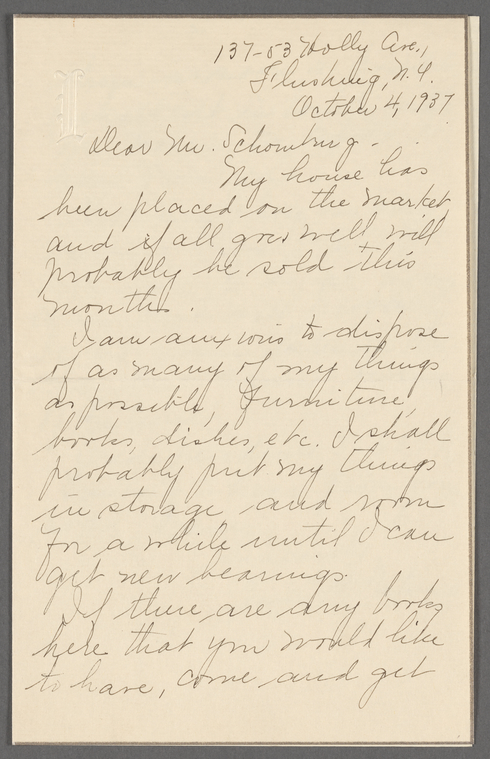 137-53 Holly Ave.,
Flushing, N.Y.
October 4, 1937
Dear Mr. Schomburg -
My house has
been placed on the market,
and if all goes well will
probably be sold this
month.
I am anxious to dispose
of as many of my things
as possible, furniture,
books, dishes, etc. I shall
probably put my things
in storage and room
for a while until I can
get new bearings.
If there are any books
here that you would like
to have, come and get